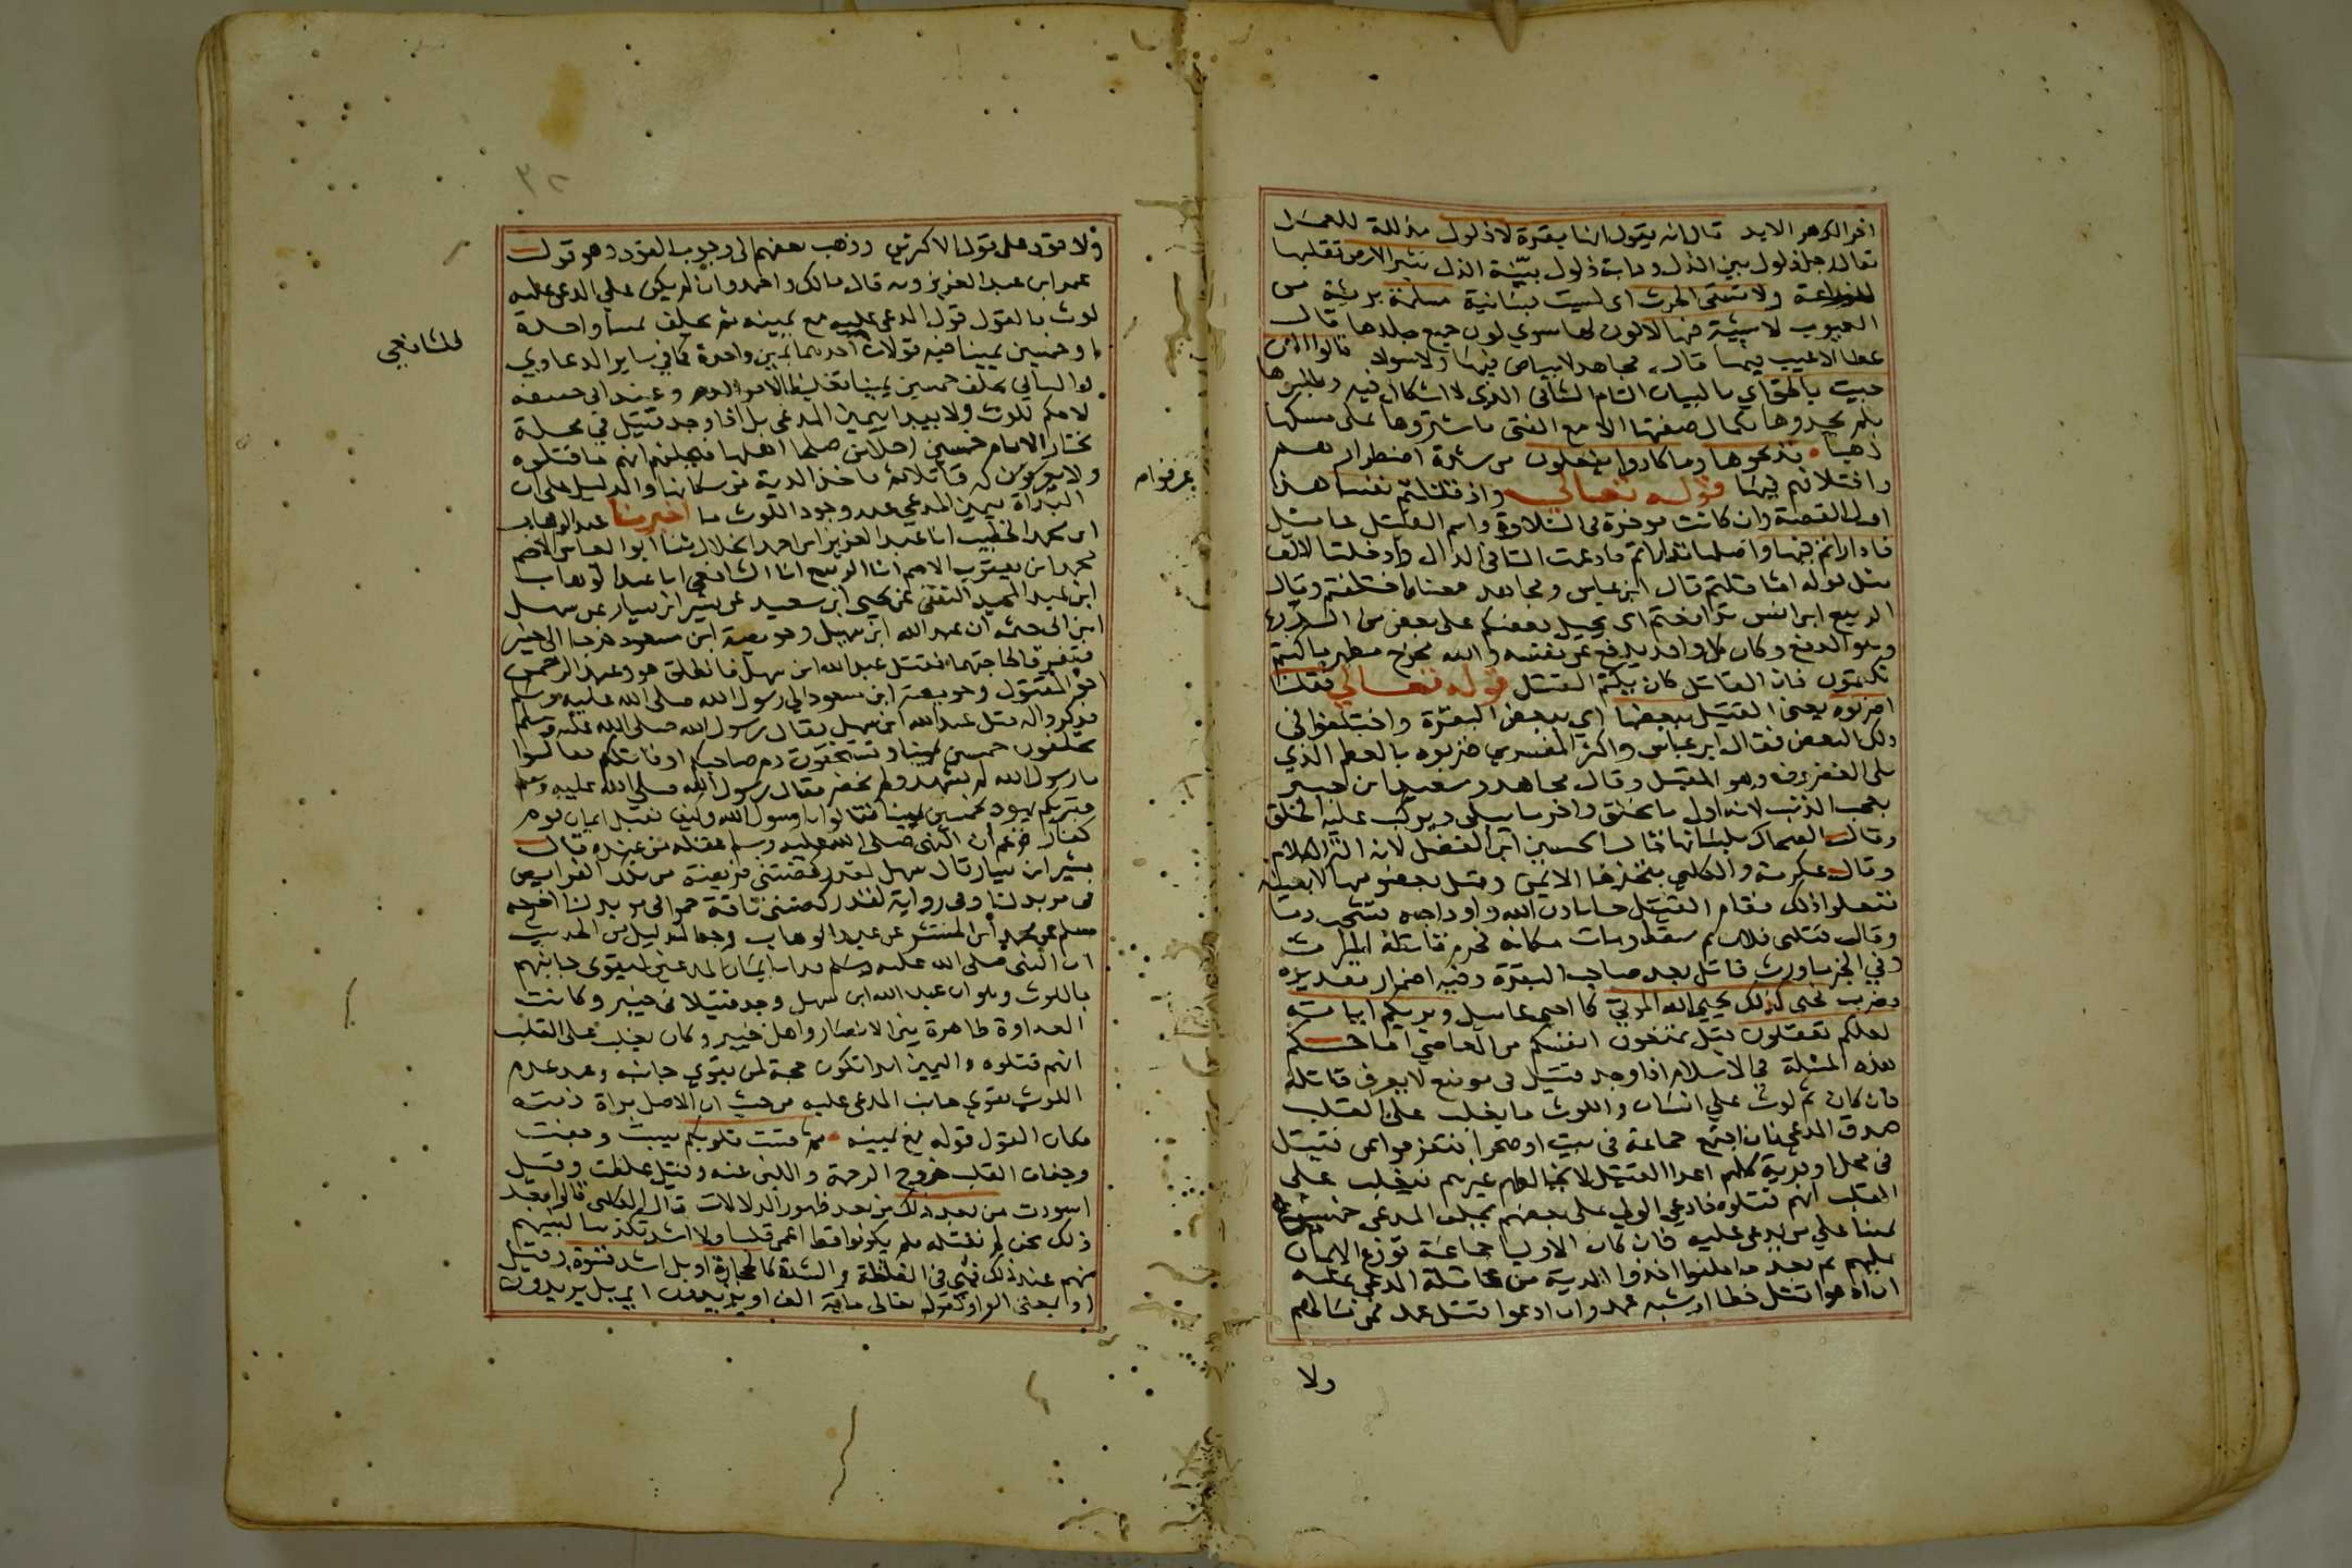 اخر الدهر الابد قال انه يقول انها بقرة لا ذلول مذللة للعمل
يقال رجل ذلول بين الذل ودابة ذلول بيّنة الذل تثير الارض تقلبها
للزراعة ولا تسقى الحرث اى ليست بسانية مسلمة بريئة من
العيوب لا شية فيها لا لون لها سوي لون جميع جلدها قال
عطا لا عيب فيها قال مجاهد لا بياض فيها ولا سواد قالوا الان
جيت بالحق اي بالبيان التام الشافى الذى لا اشكال فيه وطلبوها
فلم يجدوها بكمال صفتها الا مع الفتى فاشتروها بملى مسكها
ذهبا فذبحوها وما كادوا يفعلون من شدة اضطرارهم
واختلافهم فيها قوله تعالى واذ قتلتم نفسا هذا
اول القصة وان كانت موخرة فى التلاوة واسم القتيل عاميل
فاداراتم فيها واصلها تداراتم فادغمت التا فى الدال وادخلت الالف
مثل قوله اثاقلتم قال ابن عباس ومجاهد معناه اختلفتم وقال
الربيع ابن انس تدافعتم اى يحيل بعضكم على بعض من الدرء
وهو الدفع وكان كل واحد يدفع عن نفسه والله مخرج مظهر ما كنتم
تكتمون فان القاتل كان يكتم القتل قوله تعالي فقلنا
اضربوه يعنى القتيل ببعضها اي ببعض البقرة واختلفوا فى
ذلك البعض فقال ابن عباس واكثر المفسرين ضربوه بالعظم الذي
يلى الغضروف وهو المقتل وقال مجاهد وسعيد ابن جبير
بعجب الذنب لانه اول ما يخلق واخر ما يبلى ويركب عليه الخلق
وقال الضحاك بلسانها قال الحسين ابن الفضل لانه الة الكلام
وقال عكرمة والكلبي بفخذها الايمن وقيل بعضو منها لا بعينه
ففعلوا ذلك فقام القتيل حيا باذن الله واوداجه تشخب دما
وقال قتلنى فلان ثم سقط ومات مكانه فحرم قاتله الميراث
وفي الخبر ما ورث قاتل بعد صاحب البقرة وفيه اضمار تقديره
فضرب فحيى كذلك يحيي الله الموتي كما احيى عاميل ويريكم اياته
لعلكم تعقلون قيل تمنعون انفسكم من المعاصي اما حكم
هذه المسئلة في الاسلام اذا وجد قتيل فى موضع لا يعرف قاتله
فان كان ثم لوث علي انسان واللوث ما يغلب على القلب
صدق المدعى فان اجتمع جماعة فى بيت او صحرا فتفرقوا عن قتيل
فى محل او قرية كلهم اعدا القتيل لا يخالطهم غيرهم فيغلب على
القلب انهم قتلوه فادعى الولى على بعضهم يحلف المدعى خمسين
يمينا علي من يدعى عليه فان كان الاوليا جماعة توزع الايمان
عليهم ثم بعد ما حلفوا اخذوا الدية من عاقلة المدعي عليه
ان ادعوا قتل خطا او شبه عمد وان ادعوا قتل عمد فمن مالهم
ولا
ولا قود على قول الاكثرين وذهب بعضهم الى وجوب القود وهو قول
عمر ابن عبد العزيز وبه قال مالك واحمد وان لم يكن علي المدعى عليه
لوث فالقول قول المدعى عليه مع يمينه ثم يحلف يمينا واحدة
او خمسين يمينا فيه قولان احدهما يمين واحدة كما في ساير الدعاوي
والثانى يحلف خمسين يمينا تغليظا لامر الدم وعند ابى حنيفة
للشافعي
لا حكم للوث ولا يبدا بيمين المدعى بل اذا وجد قتيل في محلة
يختار الامام خمسين رجلا من صلحا اهلها فيحلفهم انهم ما قتلوه
ولا يعرفون له قاتلا ثم ياخذ الدية من سكانها والدليل على ان
عرفوا له
البداة بيمين المدعي عند وجود اللوث ما اخبرنا عبد الوهاب
ابن محمد الخطيب انا عبد العزيز ابن احمد الخلال ثنا ابو العباس الاصم
محمد ابن يعقوب الاصم انا الربيع انا الشافعي انا عبد الوهاب
ابن عبد المجيد الثقفى عن يحيى ابن سعيد عن بشير ابن يسار عن سهل
ابن ابى حثمه ان عبد الله ابن سهل وحويصة ابن مسعود خرجا الى خيبر
فتفرقا لحاجتهما فقتل عبد الله ابن سهل فانطلق هو وعبد الرحمن
اخو المقتول وحويصة ابن مسعود الى رسول الله صلى الله عليه وسلم
فذكروا له قتل عبد الله ابن سهل فقال رسول الله صلى الله عليه وسلم
تحلفون خمسين يمينا وتستحقون دم صاحبكم او قاتلكم فقالوا
يا رسول الله لم نشهد ولم نحضر فقال رسول الله صلى الله عليه وسلم
فتبريكم يهود بخمسين يمينا فقالوا يا رسول الله وكيف نقبل ايمان قوم
كفار فزعم ان النبى صلى الله عليه وسلم عقله من عنده قال
بشير ابن يسار قال سهل لقد ركضتنى فريضة من تلك الفرايض
فى مربد لنا وفى رواية لقد ركضتنى ناقة حمرا فى مربد لنا اخرجه
مسلم عن محمد ابن المثنى عن عبد الوهاب وجه الدليل من الحديث
ان النبى صلى الله عليه وسلم بدا بايمان المدعين ليقوى جانبهم
باللوث وهو ان عبد الله ابن سهل وجد قتيلا فى خيبر وكانت
العداوة ظاهرة بين الانصار واهل خيبر وكان يغلب على القلب
انهم قتلوه واليمين ابدا تكون حجة لمن يقوى جانبه وعند عدم
اللوث يقوى جانب المدعى عليه من حيث ان الاصل براة ذمته
فكان القول قوله مع يمينه ثم قست قلوبكم يبست وجفت
وجفاف القلب خروج الرحمة واللين عنه وقيل غلظت وقيل
اسودت من بعد ذلك من بعد ظهور الدلالات قال الكلبى قالوا بعد
ذلك نحن لم نقتله فلم يكونوا قط اعمى قلبا ولا اشد تكذيبا لنبيهم
منهم عند ذلك فهى فى الغلظة والشدة كالحجارة او بل اشد قسوة وقيل
او بمعنى الواو كقوله تعالى ماية الف او يزيدون اى بل يزيدون